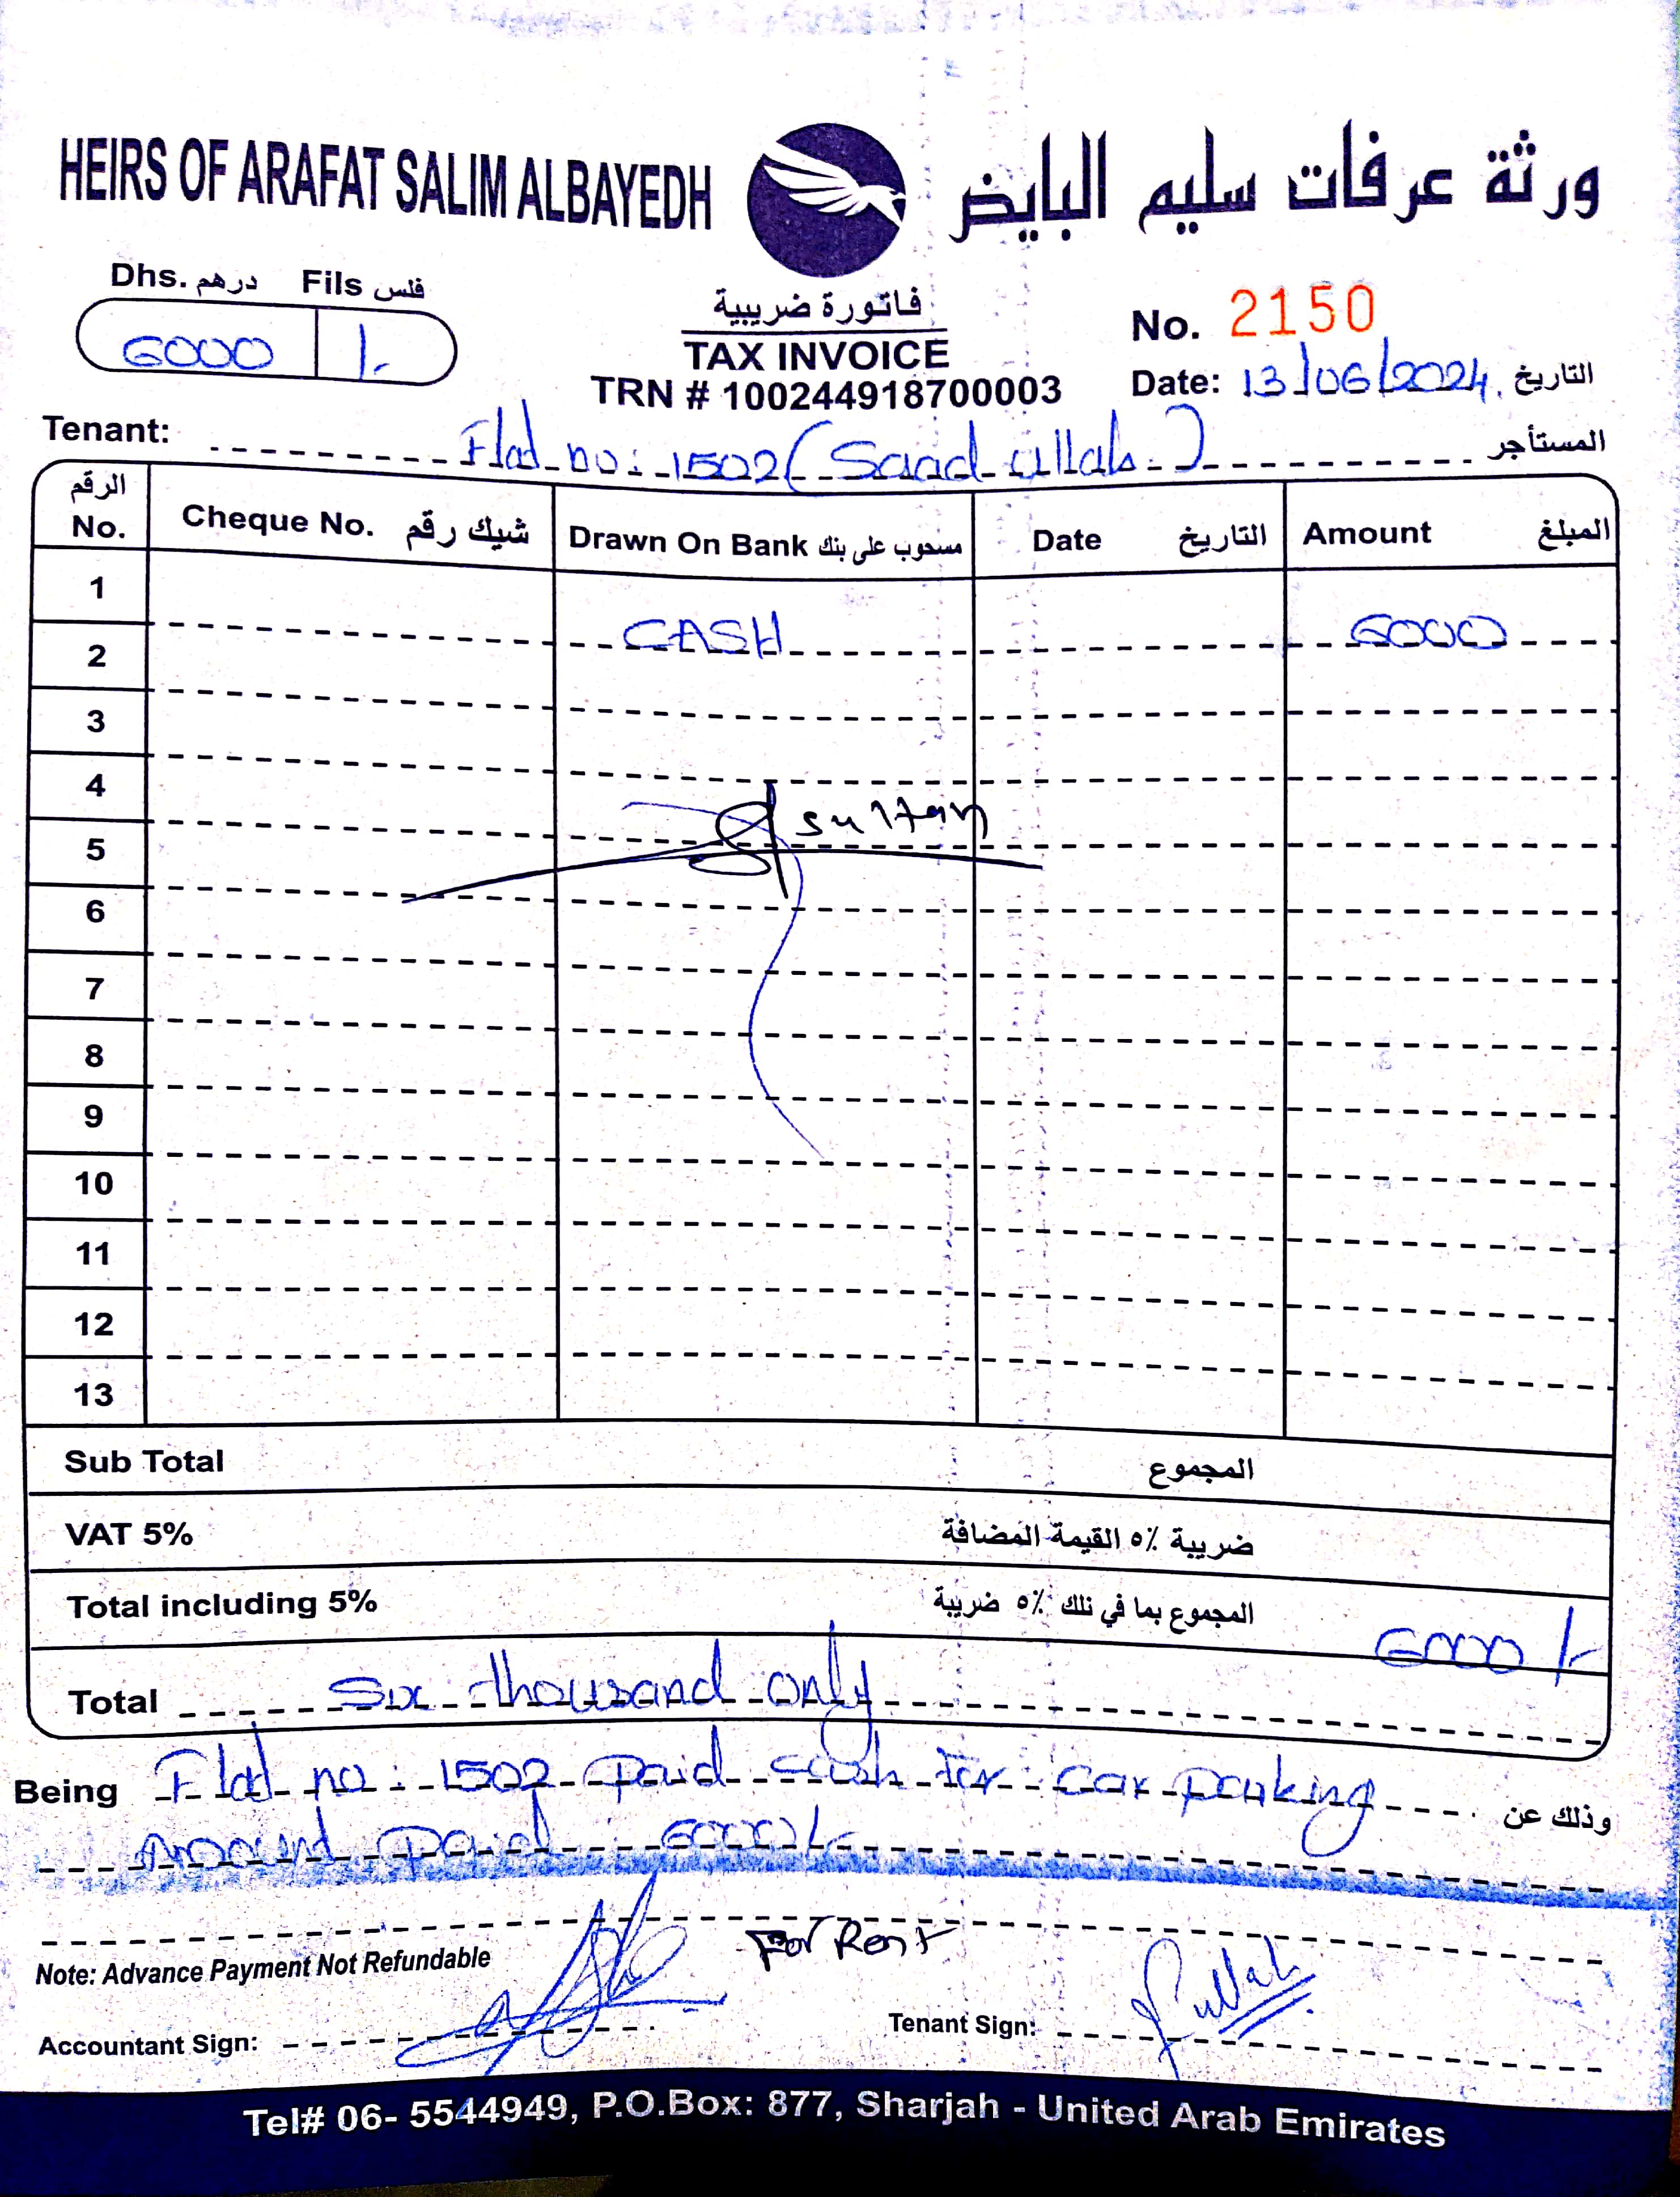 HEIRS OF ARAFAT SALIM ALBAYEDH ورثة عرفات سليم البايض
Dhs. درهم Fils فلس
6000 /-
فاتورة ضريبية
TAX INVOICE
TRN # 100244918700003
No. 2150
Date: 13/06/2024. التاريخ
Tenant: Flat no: 1502 (Saad ullah.) المستأجر
الرقم No. Cheque No. شيك رقم Drawn On Bank مسحوب على بنك Date التاريخ Amount المبلغ
1
CASH 6000
2
3
4
sultan
5
6
7
8
9
10
11
12
13
Sub Total المجموع
VAT 5% ضريبة ٥٪ القيمة المضافة
Total including 5% المجموع بما في ذلك ٥٪ ضريبة 6000/-
Total Six thousand only
Being Flat no: 1502 paid cash for car parking وذلك عن
Amount paid 6000/-
For Rent
Note: Advance Payment Not Refundable
Accountant Sign:
Tenant Sign: ullah
Tel# 06- 5544949, P.O.Box: 877, Sharjah - United Arab Emirates